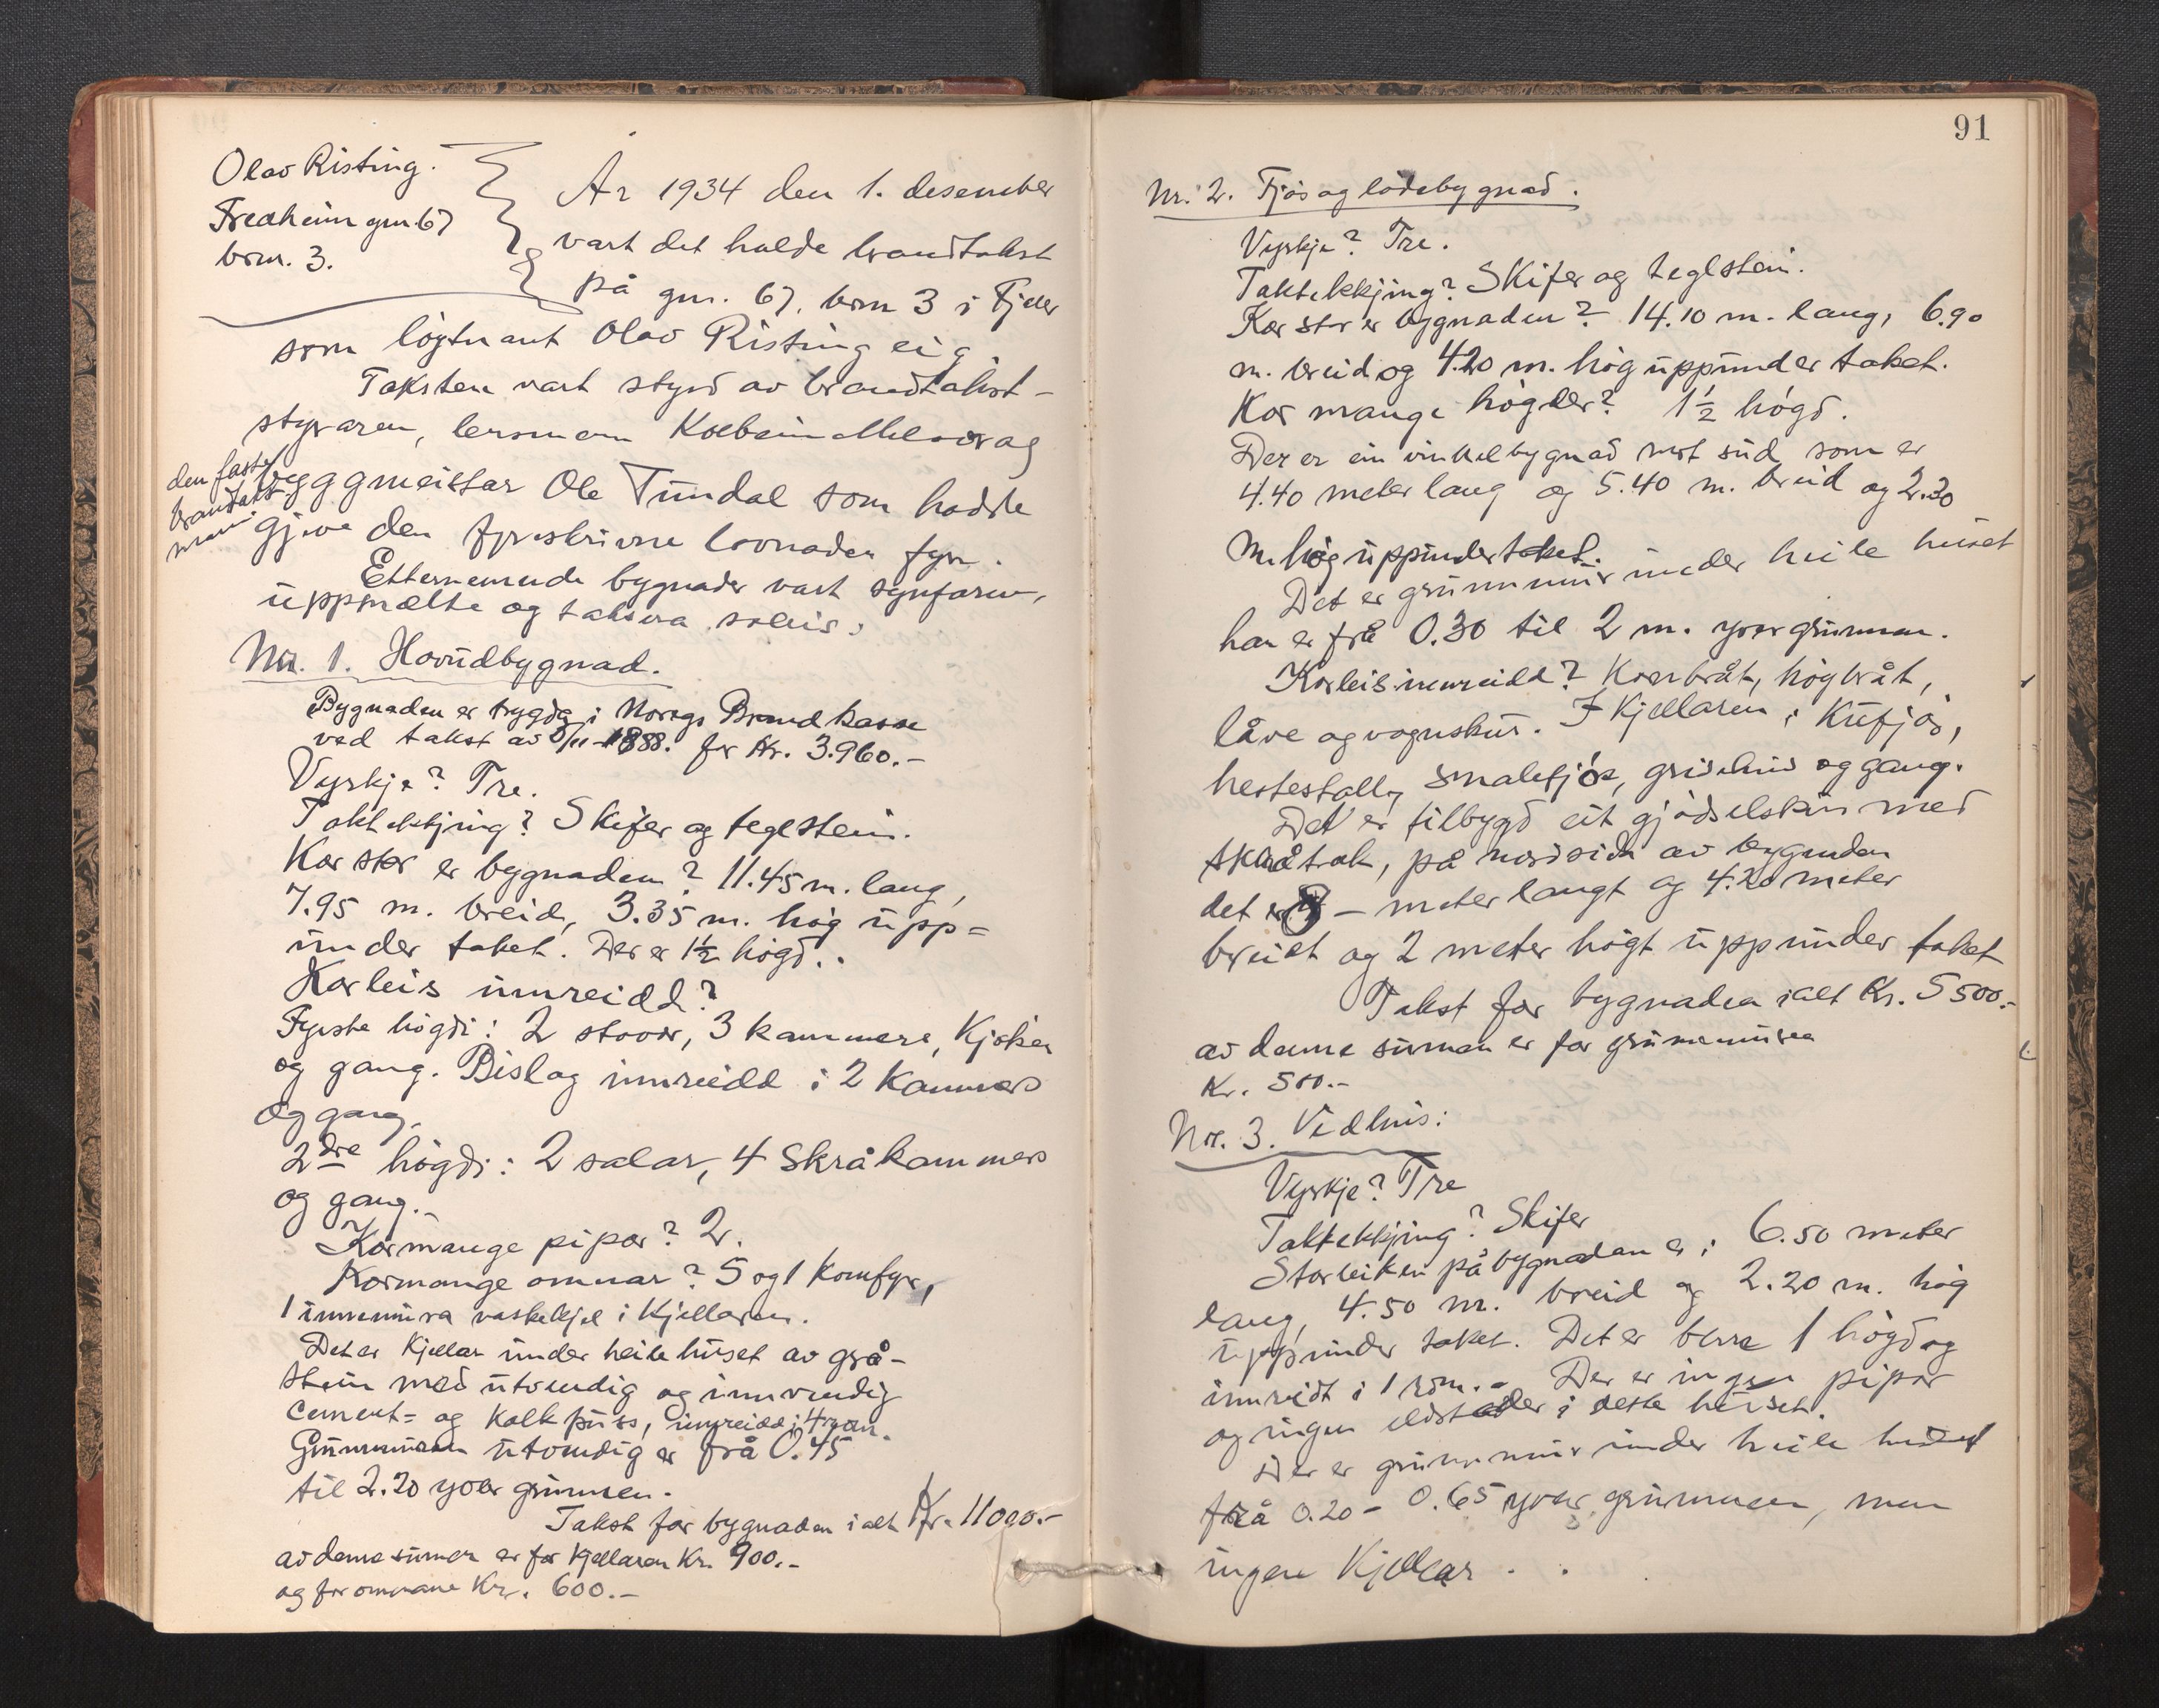 Olav Risting.
Fredheim gnr. 67
brnr. 3.
År 1934 den 1. desember
vart det halde brandtakst
på gnr. 67. brnr 3 i Fjaler
som løgtnant Olav Risting eig.
Taksten vart styrd av brandtakst-
styraren, lensmann Kolbein Melvær og
den faste
brandtakst-
mann
byggmeistar Ole Tundal som hadde
gjeve den fyreskrivne lovnaden fyrr.
Etternemnde bygnader vart synfaren,
uppmælte og taksera soleis:
Nr. 1. Hovudbygnad.
Bygnaden er trygda i Noregs Brandkasse
ved takst av 5/11-1888. for Kr. 3.960.-
Vyrkje? Tre.
Taktekkjing? Skifer og teglstein.
Kor stor er bygnaden? 11.45 m. lang,
7.95 m. breid, 3.35 m. høg upp=
under taket. Der er 1½ høgd.
Korleis innreidd?
Fyrste høgdi: 2 stovor, 3 kammers, Kjøken
og gang. Bislag innreidd i 2 Kammers
og gang.
2dre høgdi: 2 salar, 4 Skråkammers
og gang.
Kormange pipor? 2.
Kormange omnar? 5 og 1 Komfyr,
1 innmura vaskekjel i Kjellaren.
Det er Kjellar under heile huset av grå-
stein med utvendig og innvendig
Cement= og Kalkpuss, innreidd i 4 rom.
Grunnmuren utvendig er frå 0.45
til 2.20 yver grunnen.
Takst for bygnaden ialt Kr. 11000.-
av denne sumen er for Kjellaren Kr. 900.-
og for omnane Kr. 600.-
91
Nr. 2. Fjøs og lødebygnad.
Vyrkje? Tre.
Taktekkjing? Skifer og teglstein.
Kor stor er bygnaden? 14.10 m. lang, 6.90
m. breid og 4.20 m. høg uppunder taket.
Kor mange høgder? 1½ høgd.
Der er ein vinkelbygnad mot sud som er
4.40 meter lang og 5.40 m. breid og 2.30
m. høg uppunder taket.
Det er grunnmur under heile huset
han er frå 0.30 til 2 m. yver grunnen.
Korleis innreidd? Kornbråt, høybråt,
låve og vognskur. I Kjellaren: Kufjøs,
hestestall, smalefjøs, grisehus og gang.
Det er tilbygd eit gjødselskur med
skråtak, på nordsida av bygnaden
det er 8 - meter langt og 4.20 meter
breidt og 2 meter høgt uppunder taket
Takst for bygnaden ialt Kr. 5500.-
av denne sumen er for grunnmuren
Kr. 500.-
Nr. 3. Vedhus:
Vyrkje? Tre
Taktekkjing? Skifer
Storleiken på bygnaden er: 6.50 meter
lang, 4.50 m. breid og 2.20 m. høg
uppunder taket. Det er berre 1 høgd og
innreidt i 1 rom.- Der er ingen pipor
og ingen eldstader i dette huset.
Der er grunnmur under heile huset
frå 0.20 - 0.65 yver grunnen, men
ingen Kjellar.